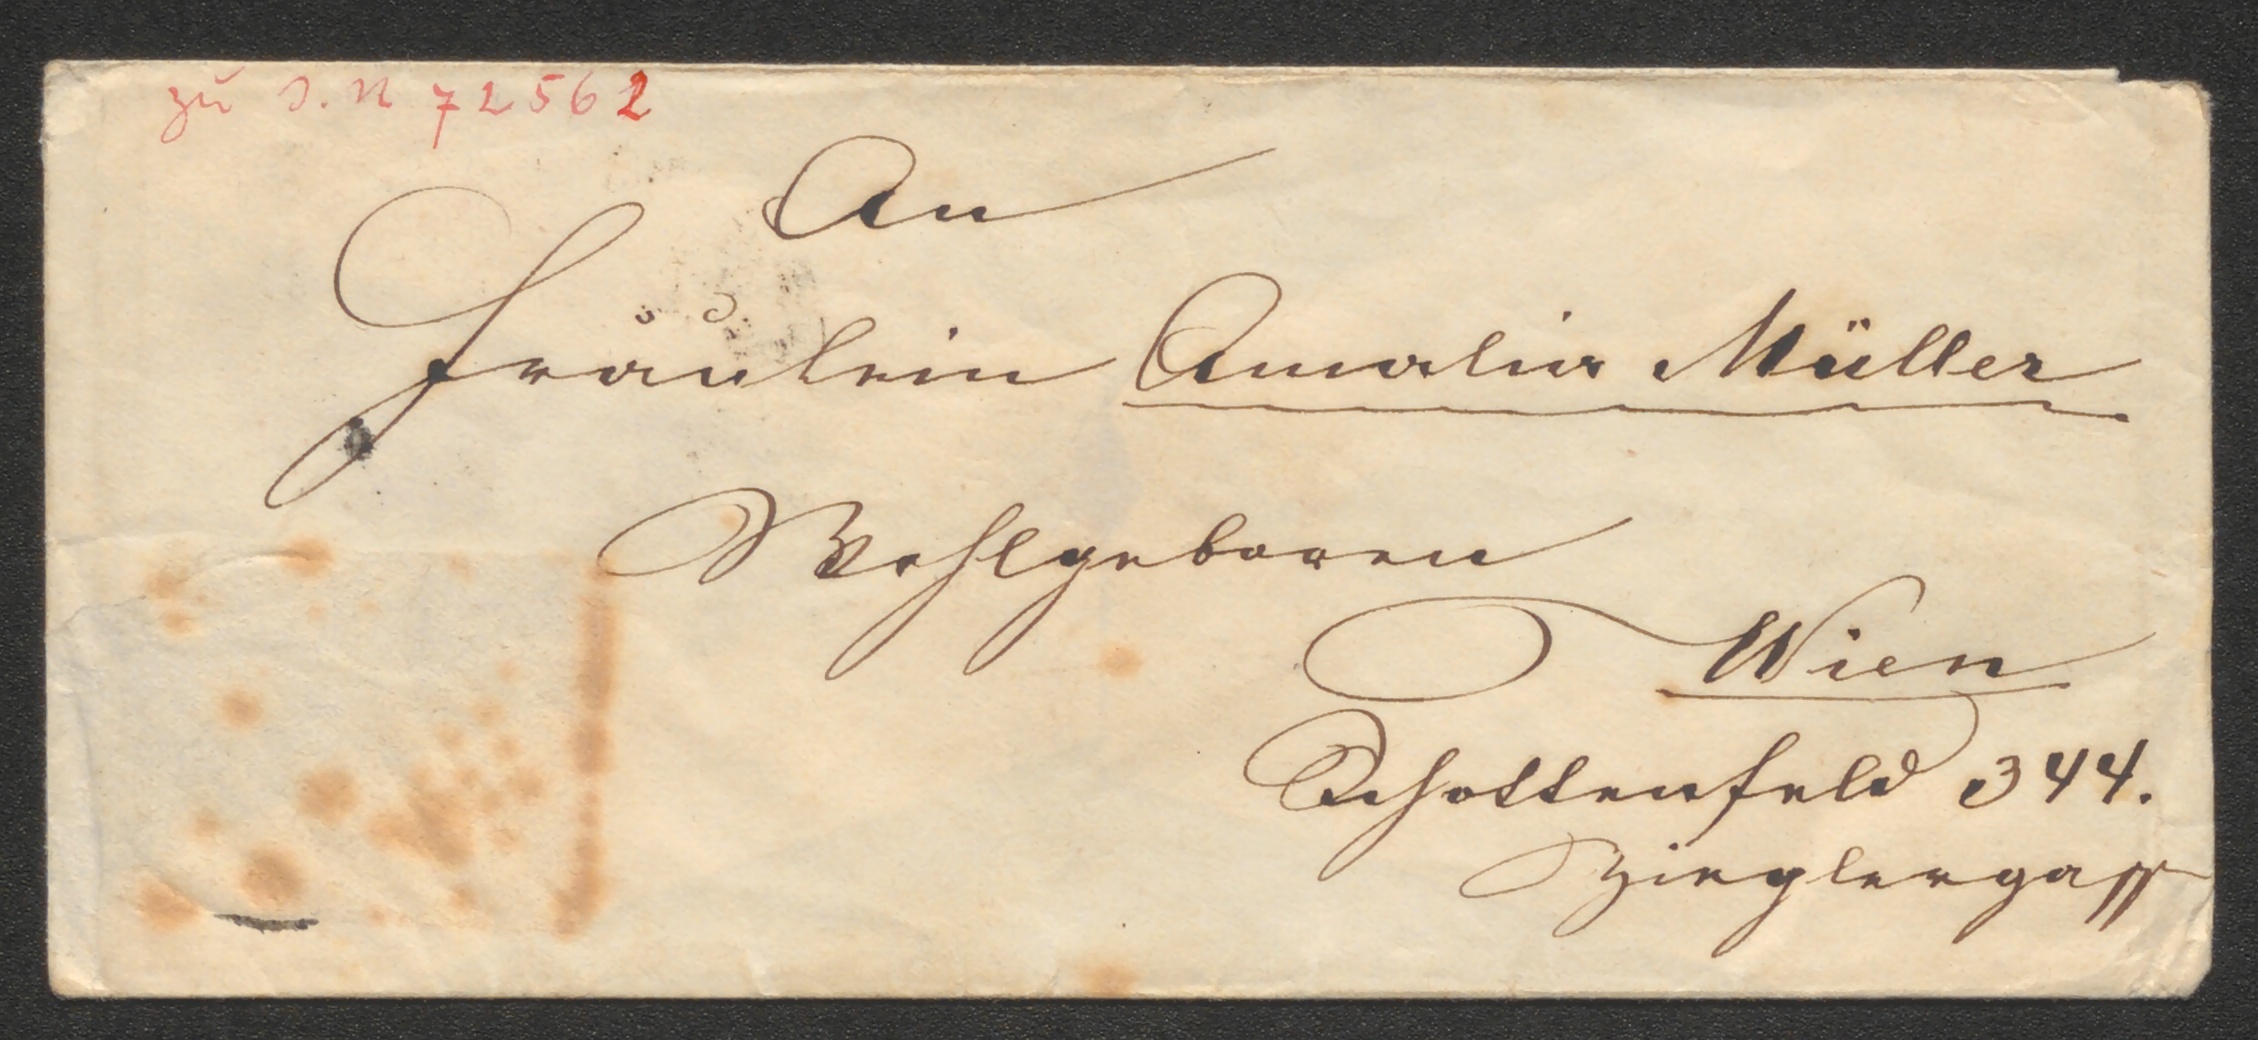 zu I.N 72562
An
Fräulein Amalia Müller
Wohlgeboren
Wien
Schottenfeld 344.
Zieglergass